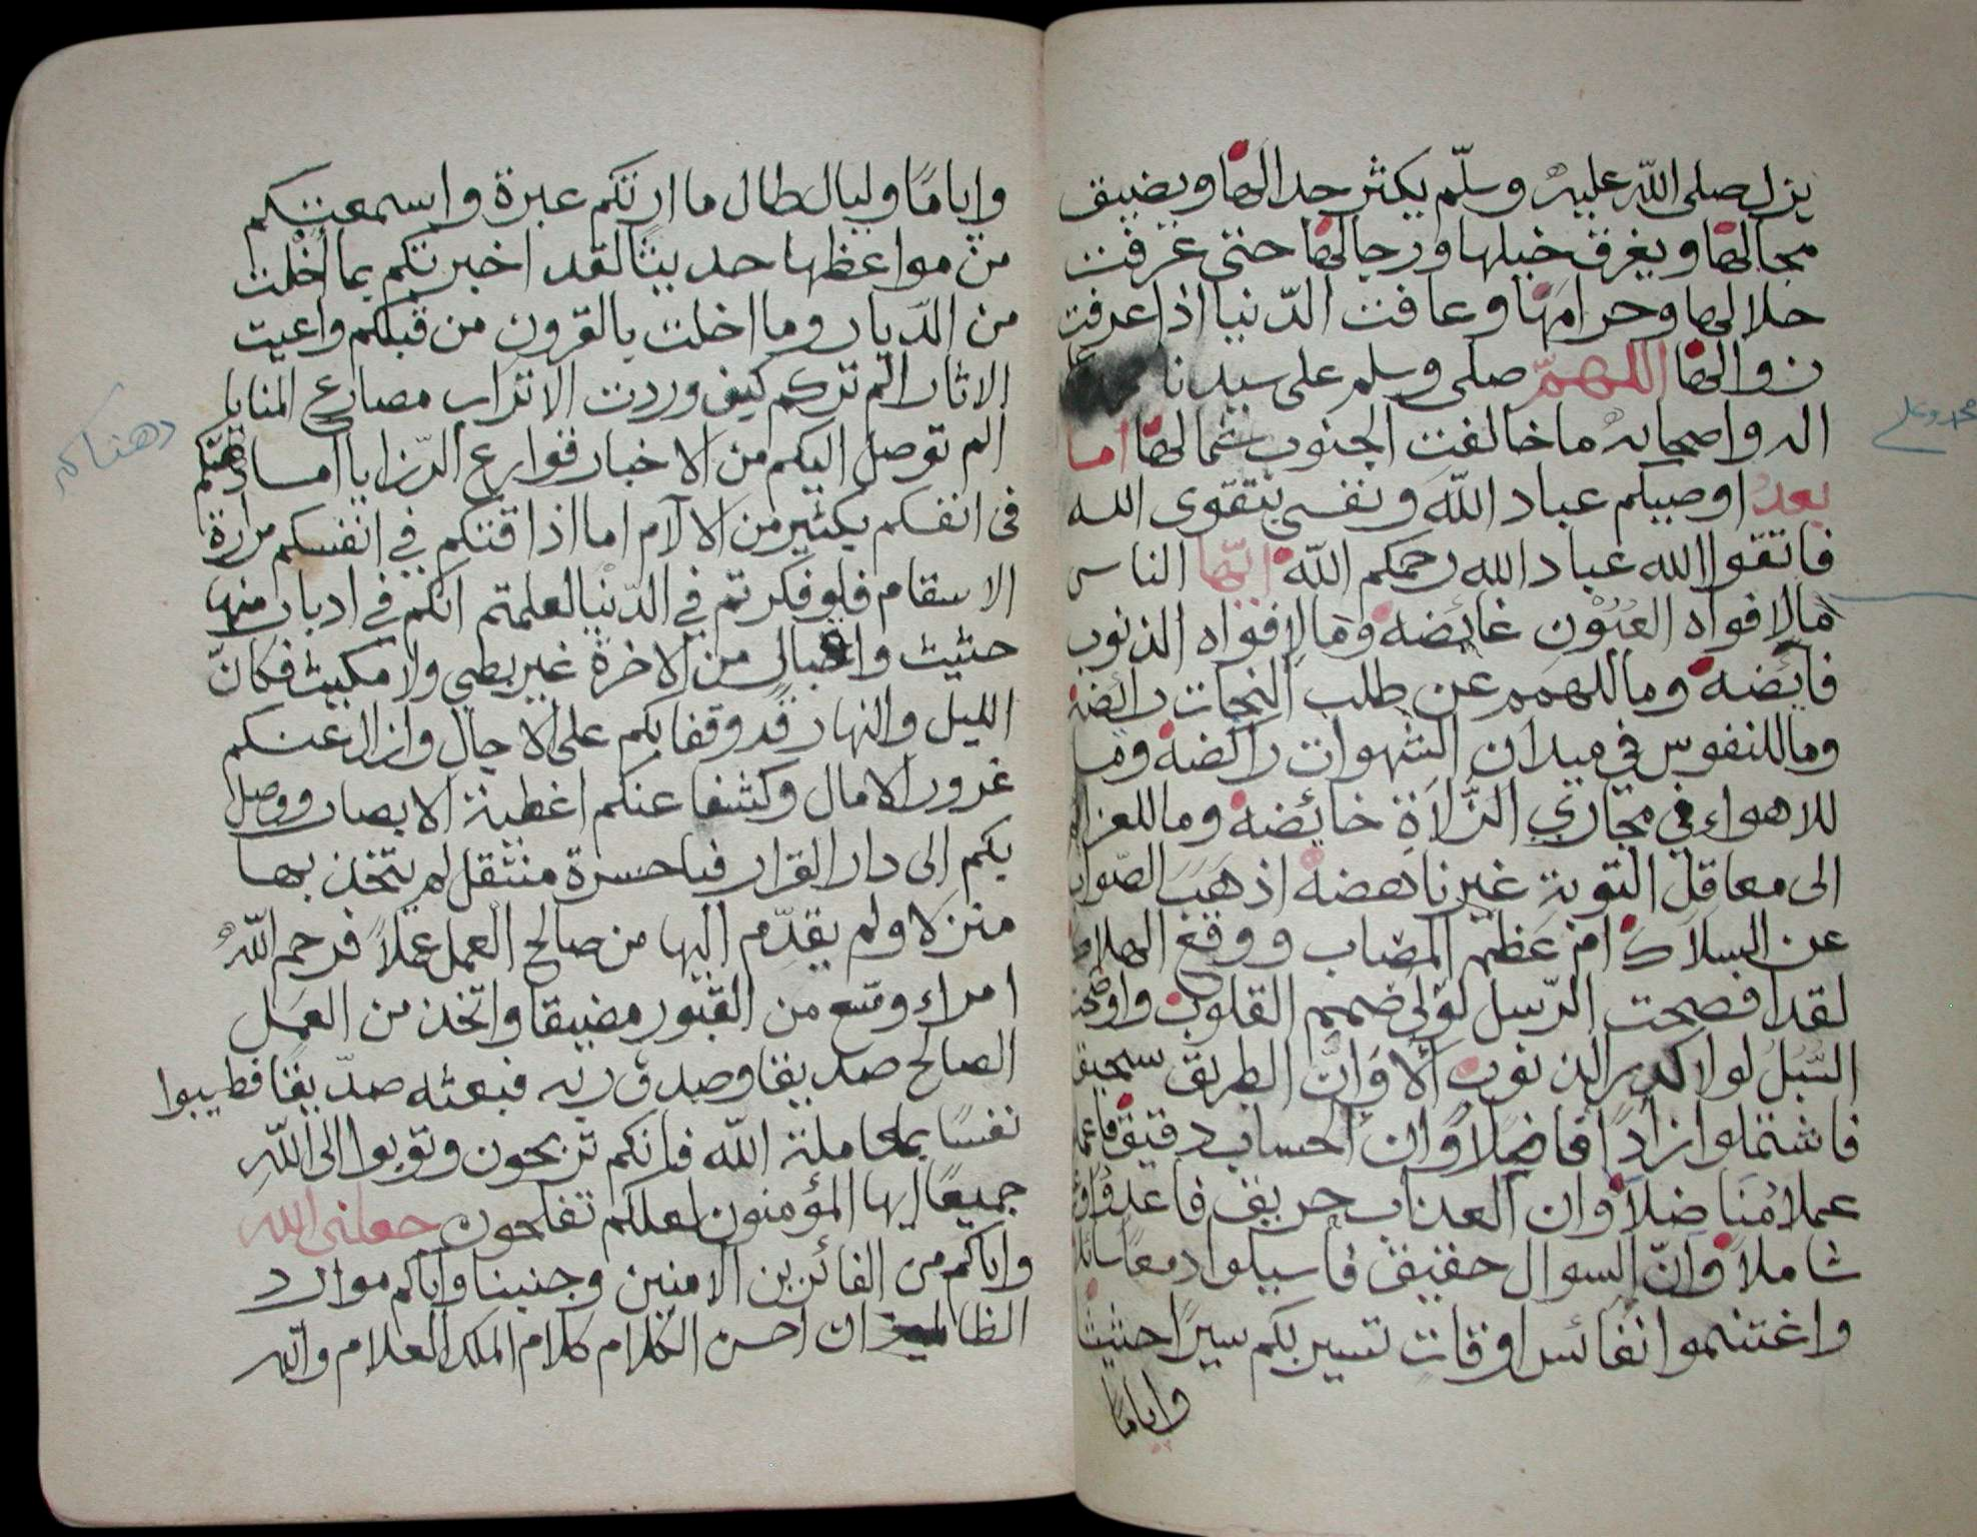 يزل صلى الله عليه وسلّم يكثر جدالها ويضيق
مجالها ويغرق خيلها ورجالها حتى عرفت
حلالها وحرامها وعافت الدّنيا اذا عرفت
زوالها اللهمّ صلى وسلم على سيدنا
محمد وعلى
اله واصحابه ما خالفت الجنوب شمالها اما
بعد اوصيكم عباد الله ونفسى بتقوى الله
فاتقوا الله عباد الله رحمكم الله ايّها الناس
مالافواه العيون غائضه ومالافواه الذنوب
فائضه وما للهمم عن طلب النجات رابضه
وما للنفوس في ميدان الشهوات راكضه وما
للاهواء في مجاري الزّلاة خائضه وما للعزائم
الى معاقل التوبة غير ناهضه اذهب الصّواب
عن السلاك ام عظم المصاب ووقع الهلاك
لقد افصحت الرّسل لولى صمم القلوب واوضحت
السّبل لولا كدر الذنوب ألا وَانّ الطريق سحيق
فاشتملوا زادًا فاضلاً وان الحساب دقيق فاعملوا
عملا مُنَاضلاً وان العذاب حريق
شاملاً وانّ السوال حقيق فاسيلوا دمعا سائلا
واغتنموا نفائس اوقات تسير بكم سيرًا حثيثا
واياماً
واياماً وليال طال ما ارتكم عبرة واسمعتكم
من مواعظها حديثا لقد اخبرتكم بما اخلت
من الدّيار وما اخلت بالقرون من قبلكم واعيت
الاثار الم تركم كيف وردت الاتراب مصارع المنايا
الم توصل اليكم من الاخبار قوارع الرّزايا اما دهتكم
دهتاكم
فى انفسكم بكثير من الالآم اما اذاقتكم في انفسكم مرارة
الاسقام فلو فكرتم في الدّنيا لعلمتم انكم في ادبار منها
حثيث واقبال من الاخرة غير بطي ولا مكيث فكانّ
الليل والنهار قد وقفا بكم على الاجال وازال عنكم
غرور الامال وكشفا عنكم اغطية الابصار ووصلا
بكم الى دار القرار فيا حسرة منتقل لم يتخذ بها
منزلا ولم يقدّم اليها من صالح العمل عملاً فرحم اللهُ
امراء وسّع من القبور مضيقا واتّخذ من العمل
الصالح صديقا وصدق ربه فبعثه صدّيقا فطيبوا
نفسًا بمعاملة الله فانكم تربحون وتوبوا الى اللهِ
جميعًا ايها المؤمنون لعلكم تفلحون جعلنى الله
واياكم من الفائزين الامنين وجنبنا واياكم موارد
الظالمين ان احسن الكلام كلام الملك العلام والله